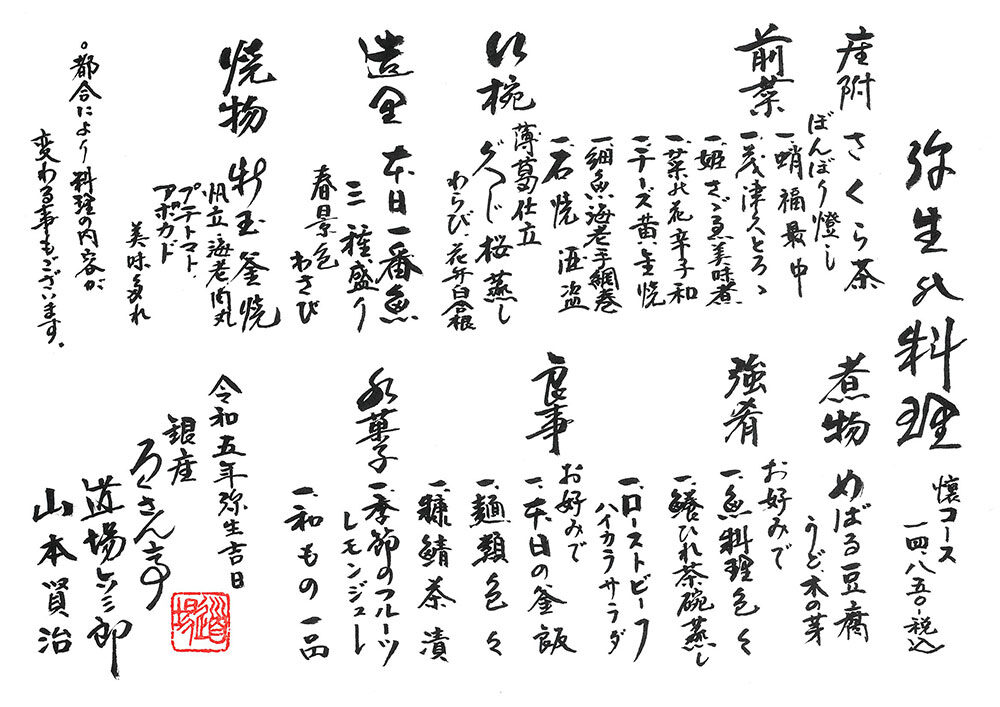 弥生の料理
懐コース
一四、八五〇税込
座附 さくら茶
ぼんぼり燈し
前菜 一、蛸福最中
一、茂津久とろゝ
一、姫さゞゑ美味煮
一、菜の花辛子和
一、チーズ黄金焼
一、細魚海老手綱巻
一、石焼 酒盗
吸椀 薄葛仕立
ぐじ桜蒸し
わらび、花弁百合根
造里 本日一番魚
三種盛り
春景色 わさび
焼物 新玉釜焼
帆立海老肉丸
プチトマト、
アボカド
美味多れ
煮物 めばる豆腐
うど、木の芽
強肴 お好みで
一、魚料理色々
一、鱶ひれ茶碗蒸し
一、ローストビーフ
ハイカラサラダ
食事 お好みで
一、本日の釜飯
一、麺類色々
一、糠鯖茶漬
水菓子 一、季節のフルーツ
レモンジュレ
一、和もの一品
令和五年弥生吉日
銀座
ろくさん亭
道場六三郎
山本賢治
道場
。都合により料理の内容が
変わる事もございます。